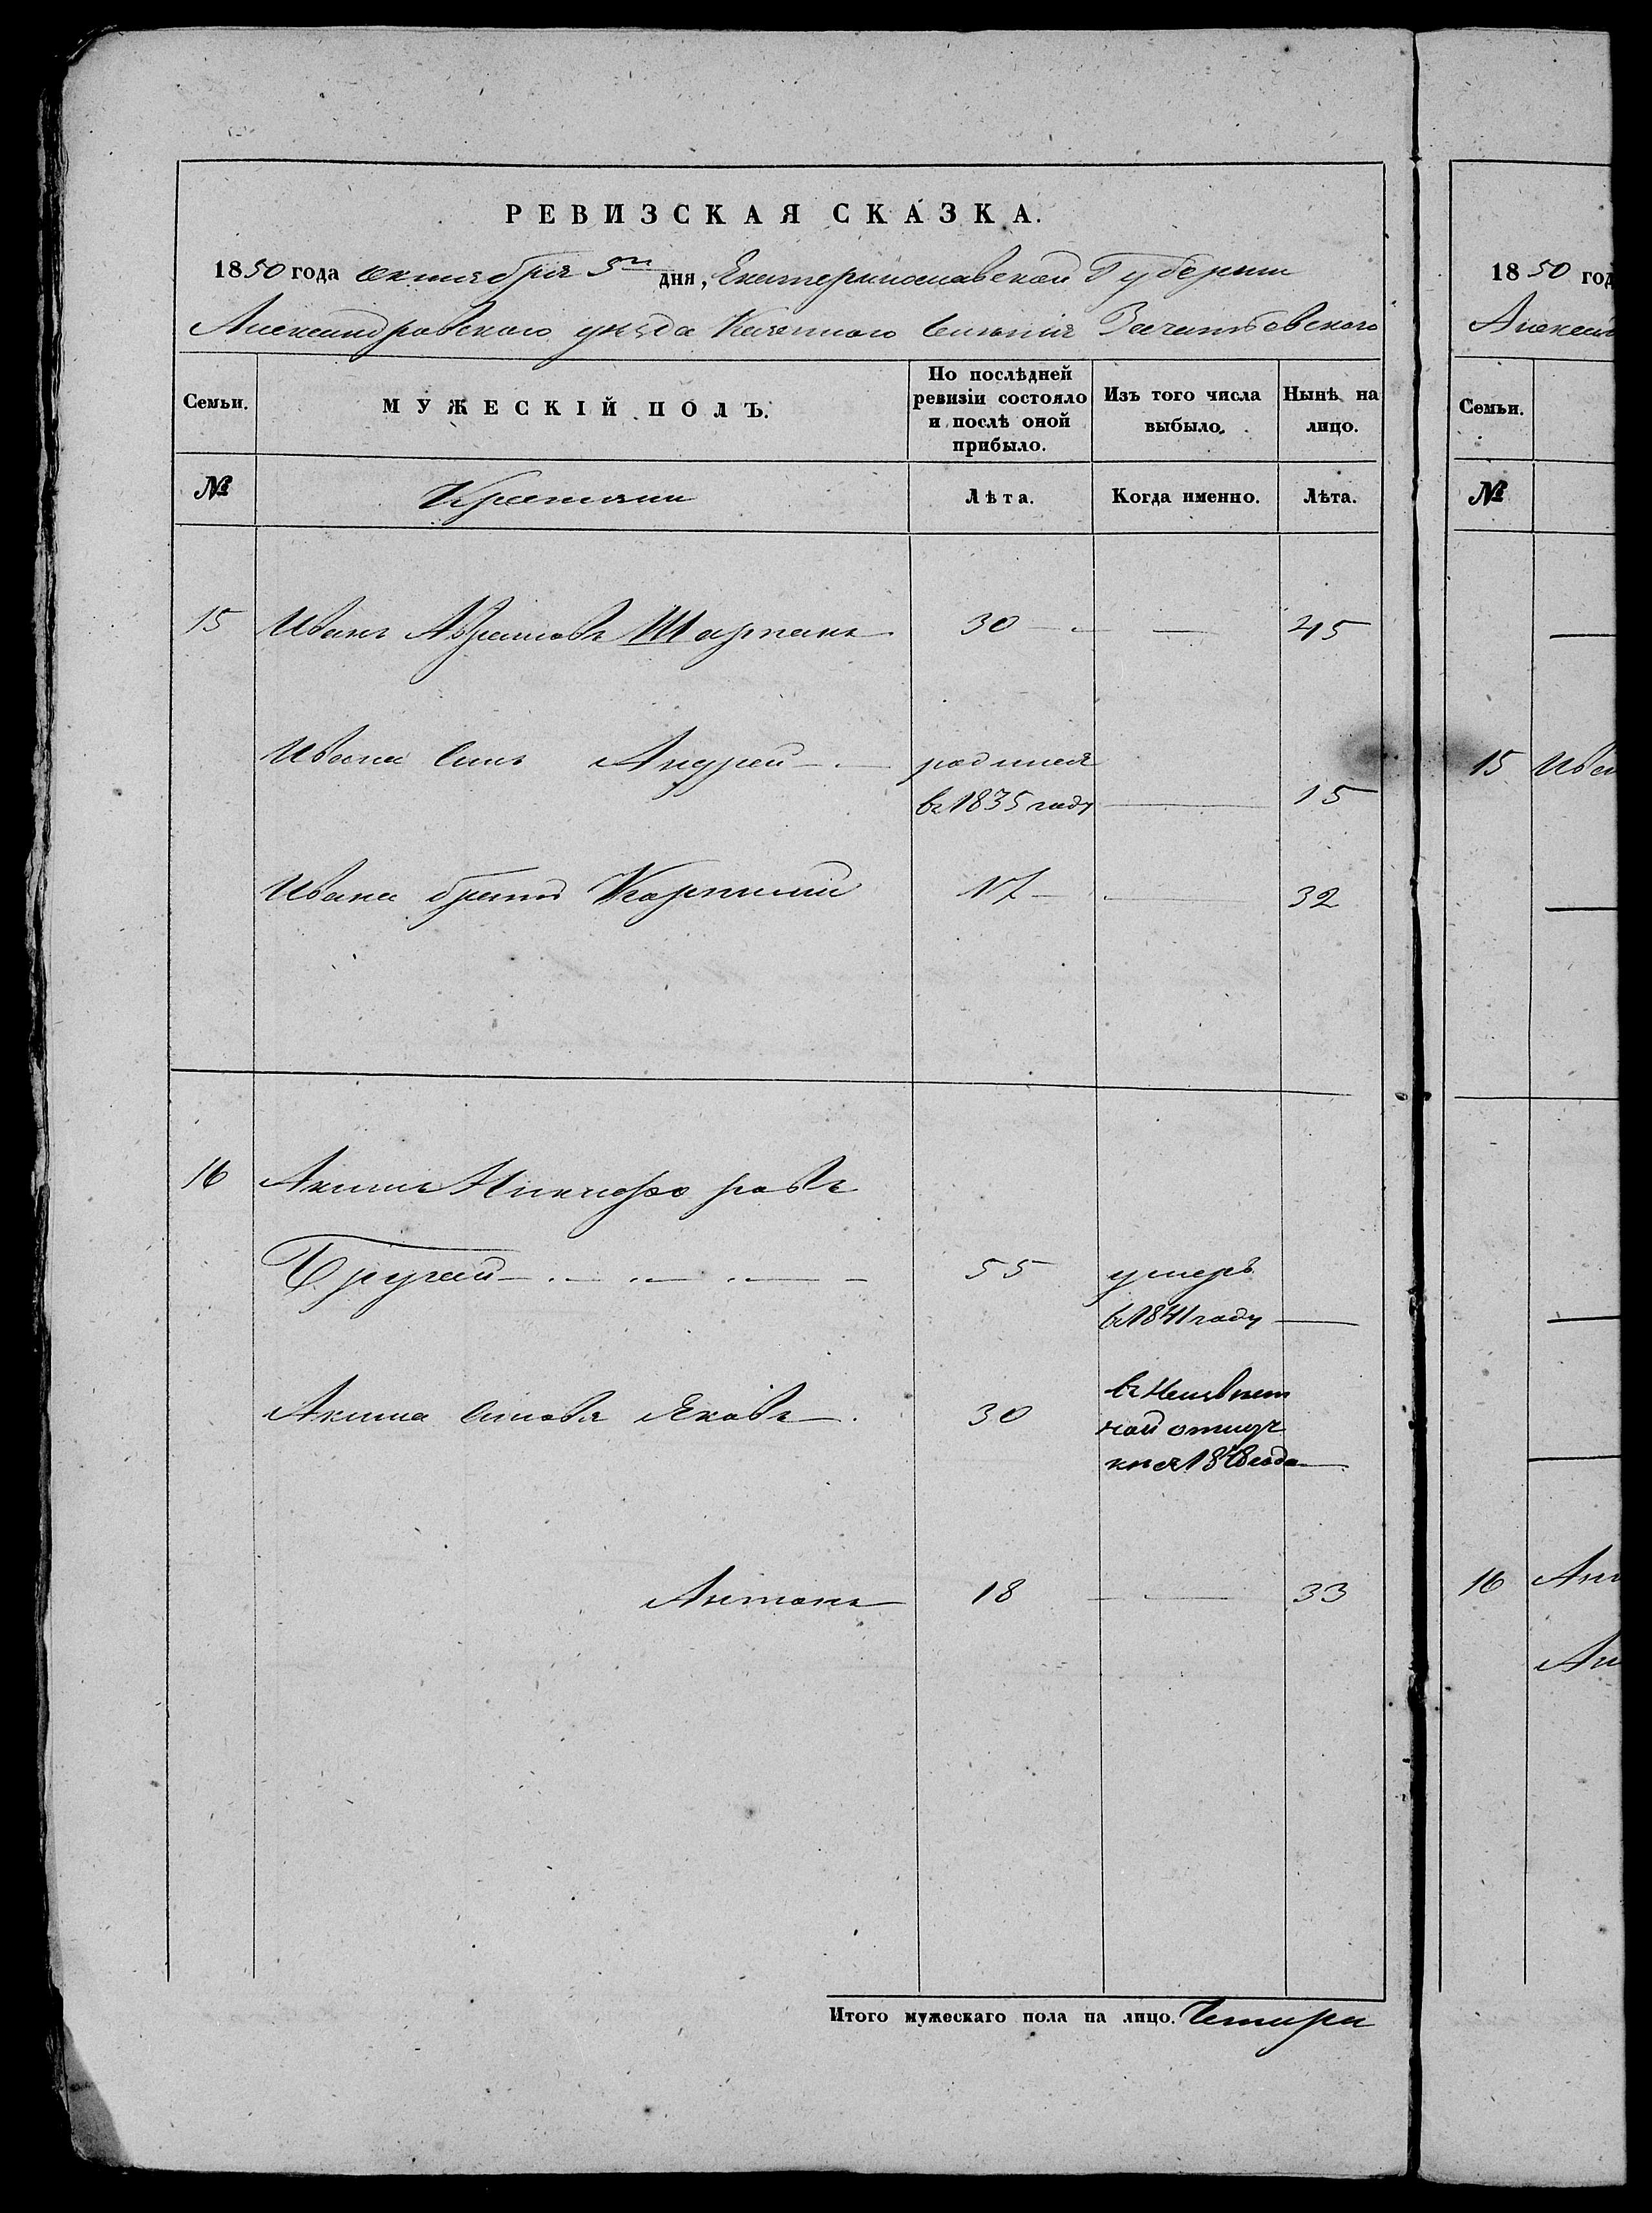 РЕВИЗСКАЯ СКАЗКА.
1850 года октября 5го дня, Екатеринославской Губернии
Александровского уѣзда Казенного Селения Зачатовского
Семьи.
МУЖЕСКІЙ ПОЛЪ.
По послѣдней ревизіи состояло и послѣ оной прибыло.
Изъ того числа выбыло.
Нынѣ на лицо.
№
Лѣта.
Когда именно.
Лѣта.
15 Иванъ Абрамовъ 30 45
Ивана Сынъ Андрей родился
въ 1835 году 15
Ивана братъ 17 32
16 Акимъ Никифоровъ
55 умеръ
в 1841 году
Акима Сыновя Яковъ 30
отлуч
ки съ 1848 года
Антонъ 18 33
Итого мужескаго пола на лицо. Четыри
1850 год
Алексан
Семьи.
№
15 Иван
16